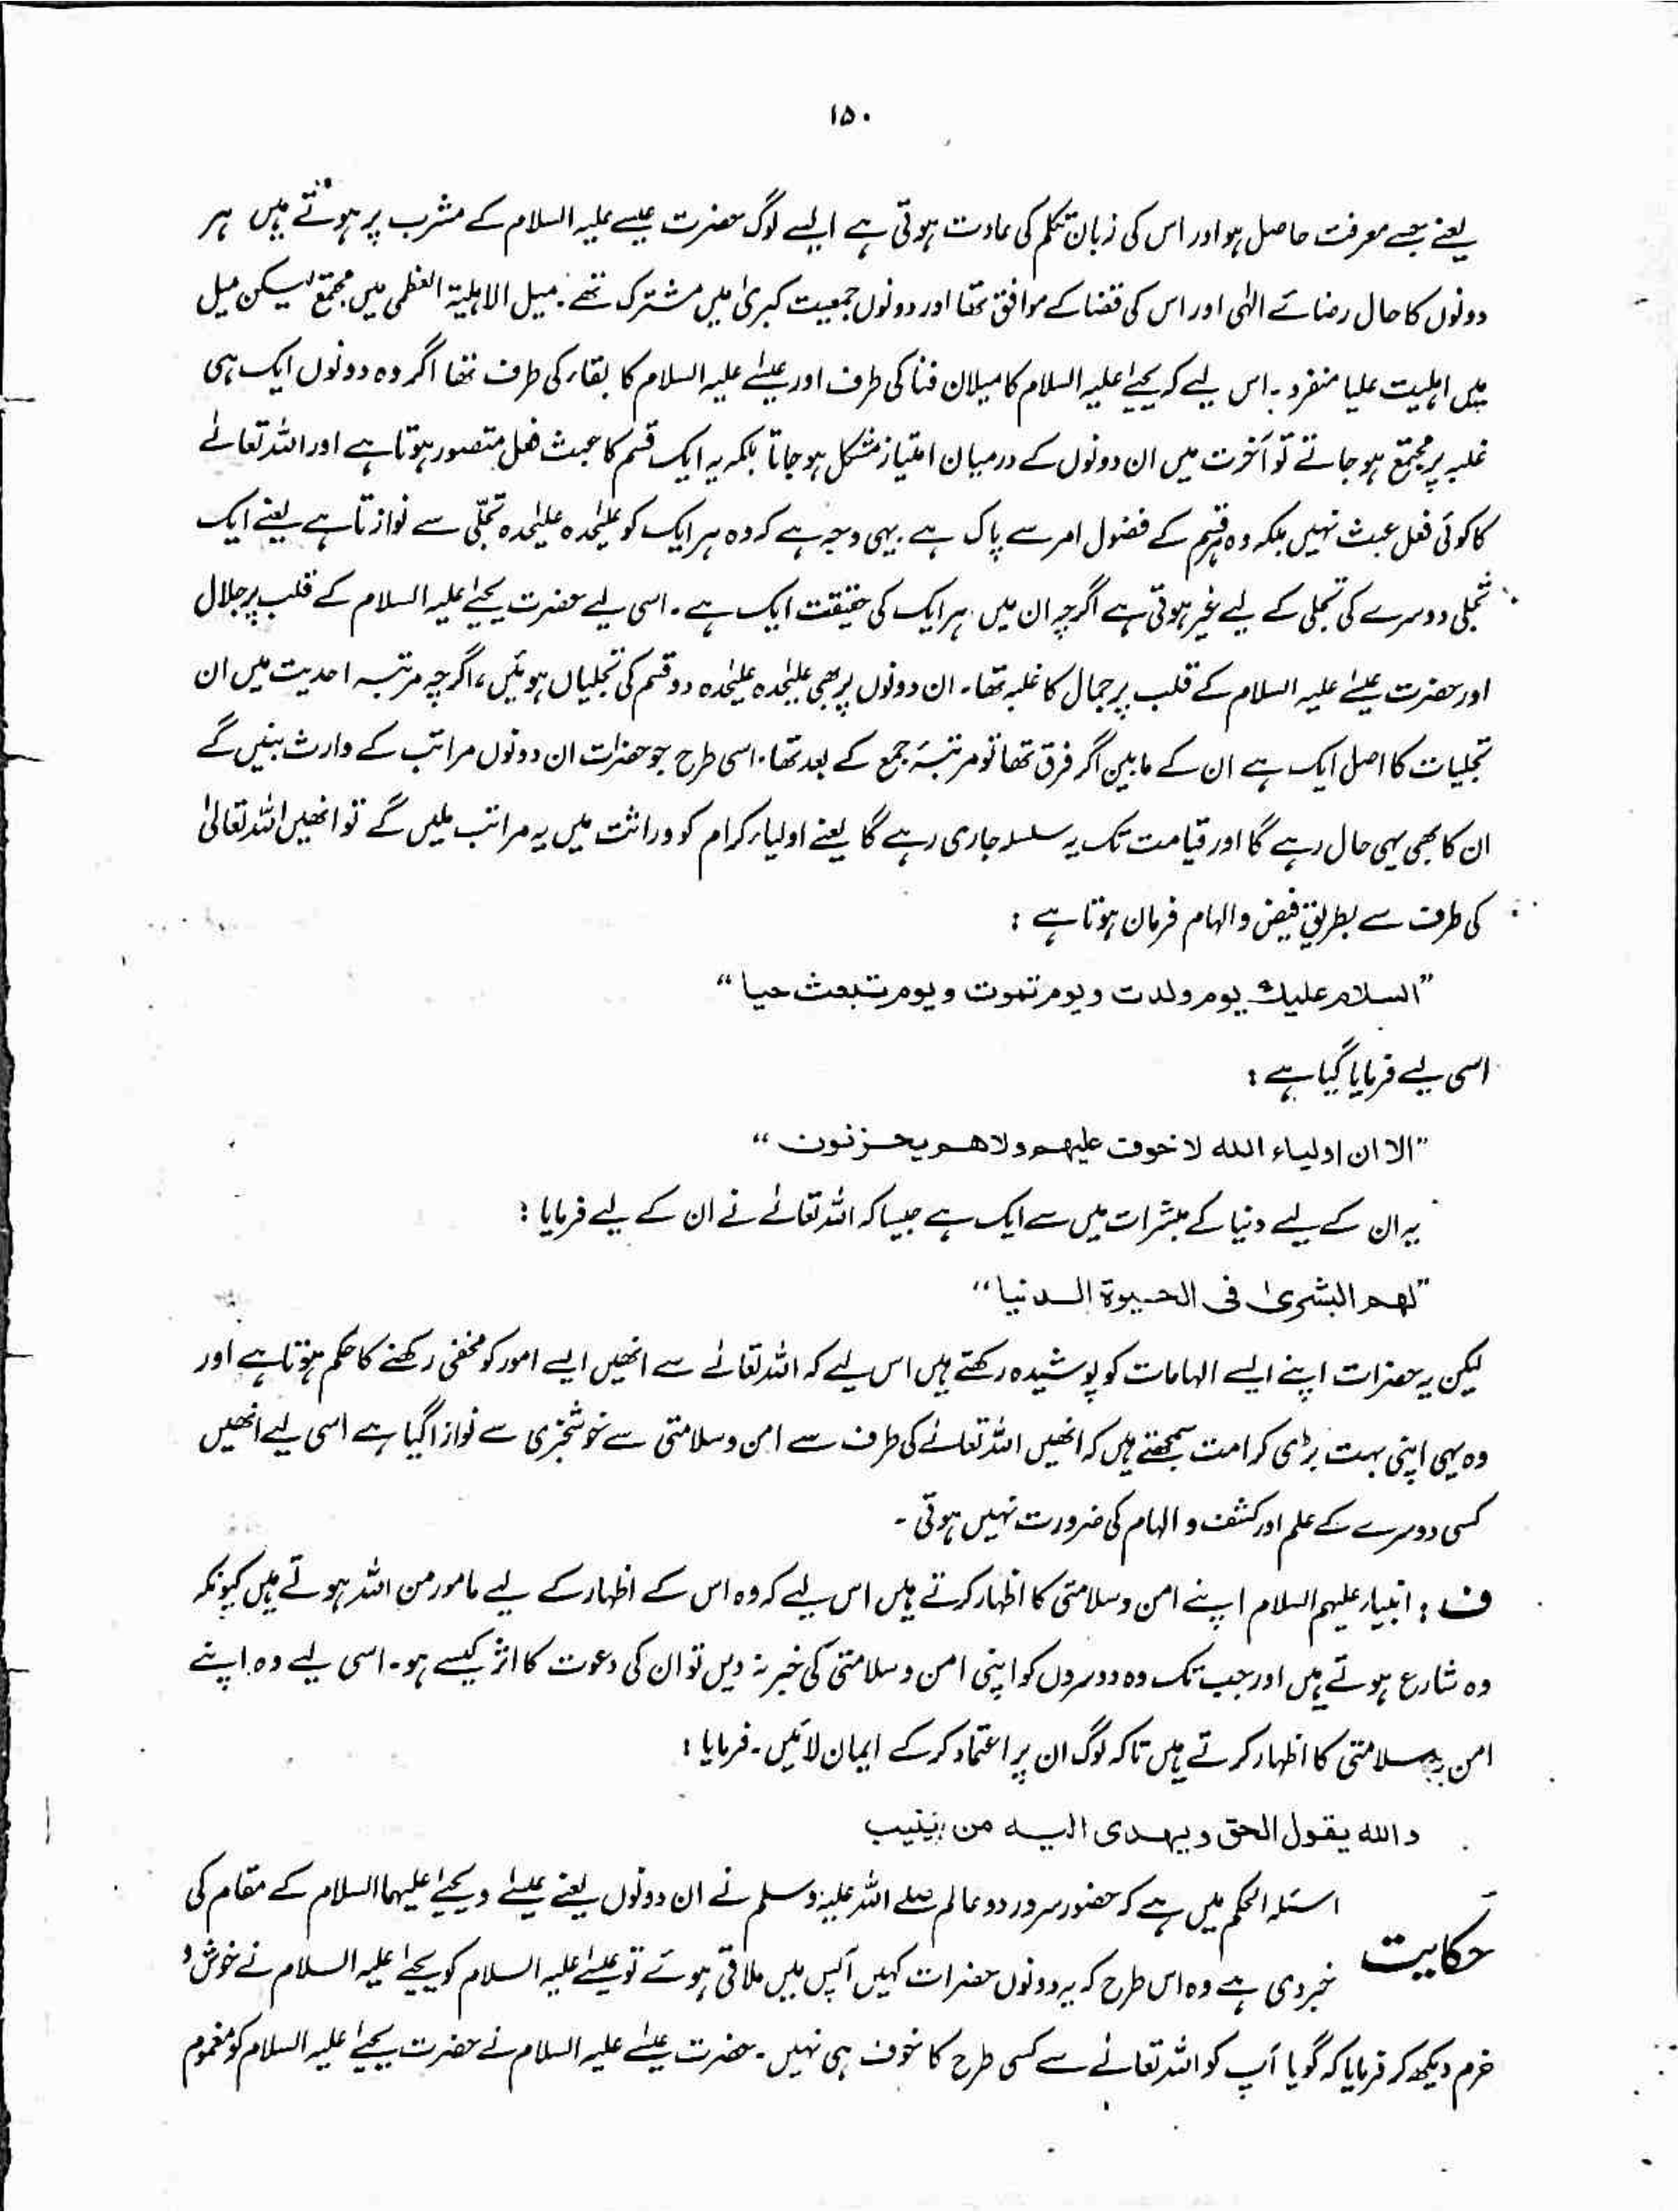 ۱۵۰
یعنے جسے معرفت حاصل ہو اور اس کی زبان تکلم کی عادت ہوتی ہے ایسے لوگ حضرت عیسے علیہ السلام کے مشرب پر ہوتے ہیں ہر
دونوں کا حال رضائے الٰہی اور اس کی قضا کے موافق تھا اور دونوں جمعیت کبریٰ میں مشترک تھے۔ میل الاہلیۃ العظمی میں مجتمع لیکن میل
میں اہلیت علیا منفرد۔ اس لیے کہ یحیےٰ علیہ السلام کا میلان فنا کی طرف اور عیسےٰ علیہ السلام کا بقاء کی طرف تھا اگر وہ دونوں ایک ہی
غلبہ پر مجتمع ہو جاتے تو آخرت میں ان دونوں کے درمیان امتیاز مشکل ہو جاتا بلکہ یہ ایک قسم کا عبث فعل متصور ہوتا ہے اور اللہ تعالےٰ
کا کوئی فعل عبث نہیں بلکہ وہ ہر قسم کے فضول امر سے پاک ہے۔ یہی وجہ ہے کہ وہ ہر ایک کو علیٰحدہ علیٰحدہ تجلّی سے نوازتا ہے یعنے ایک
تجلی دوسرے کی تجلی کے لیے غیر ہوتی ہے اگرچہ ان میں ہر ایک کی حقیقت ایک ہے۔ اسی لیے حضرت یحیےٰ علیہ السلام کے قلب پر جلال
اور حضرت عیسےٰ علیہ السلام کے قلب پر جمال کا غلبہ تھا۔ ان دونوں پر بھی علیٰحدہ علیٰحدہ دو قسم کی تجلیاں ہوئیں، اگرچہ مرتبہ احدیت میں ان
تجلیات کا اصل ایک ہے ان کے مابین اگر فرق تھا تو مرتبۂ جمع کے بعد تھا۔ اسی طرح جو حضرات ان دونوں مراتب کے وارث بنیں گے
ان کا بھی یہی حال رہے گا اور قیامت تک یہ سلسلہ جاری رہے گا یعنے اولیاء کرام کو وراثت میں یہ مراتب ملیں گے تو انھیں اللہ تعالیٰ
کی طرف سے بطریق فیض و الہام فرمان ہوتا ہے :
”السلام علیك یوم ولدت ویوم تموت ویوم تبعث حیا“
اسی لیے فرمایا گیا ہے :
”الا ان اولیاء الله لا خوف علیهم ولا هم یحزنون“
یہ ان کے لیے دنیا کے مبشرات میں سے ایک ہے جیسا کہ اللہ تعالےٰ نے ان کے لیے فرمایا :
”لهم البشرىٰ فى الحیوة الدنیا“
لیکن یہ حضرات اپنے ایسے الہامات کو پوشیدہ رکھتے ہیں اس لیے کہ اللہ تعالےٰ سے انھیں ایسے امور کو مخفی رکھنے کا حکم ہوتا ہے اور
وہ یہی اپنی بہت بڑی کرامت سمجھتے ہیں کہ انھیں اللہ تعالےٰ کی طرف سے امن و سلامتی سے خوشخبری سے نوازا گیا ہے اسی لیے انھیں
کسی دوسرے کے علم اور کشف و الہام کی ضرورت نہیں ہوتی۔
ف : انبیاء علیہم السلام اپنے امن و سلامتی کا اظہار کرتے ہیں اس لیے کہ وہ اس کے اظہار کے لیے مامور من اللہ ہوتے ہیں کیونکہ
وہ شارع ہوتے ہیں اور جب تک وہ دوسروں کو اپنی امن و سلامتی کی خبر نہ دیں تو ان کی دعوت کا اثر کیسے ہو۔ اسی لیے وہ اپنے
امن سلامتی کا اظہار کرتے ہیں تاکہ لوگ ان پر اعتماد کرکے ایمان لائیں۔ فرمایا :
والله یقول الحق ویهدى الیه من ینیب
حکایت اسئلہ الحکم میں ہے کہ حضور سرور دو عالم صلے اللہ علیہ وسلم نے ان دونوں یعنے عیسےٰ و یحیےٰ علیہما السلام کے مقام کی
خبر دی ہے وہ اس طرح کہ یہ دونوں حضرات کہیں آپس میں ملاقی ہوئے تو عیسےٰ علیہ السلام کو یحیےٰ علیہ السلام نے خوش و
خرم دیکھ کر فرمایا کہ گویا آپ کو اللہ تعالےٰ سے کسی طرح کا خوف ہی نہیں۔ حضرت عیسےٰ علیہ السلام نے حضرت یحیےٰ علیہ السلام کو مغموم